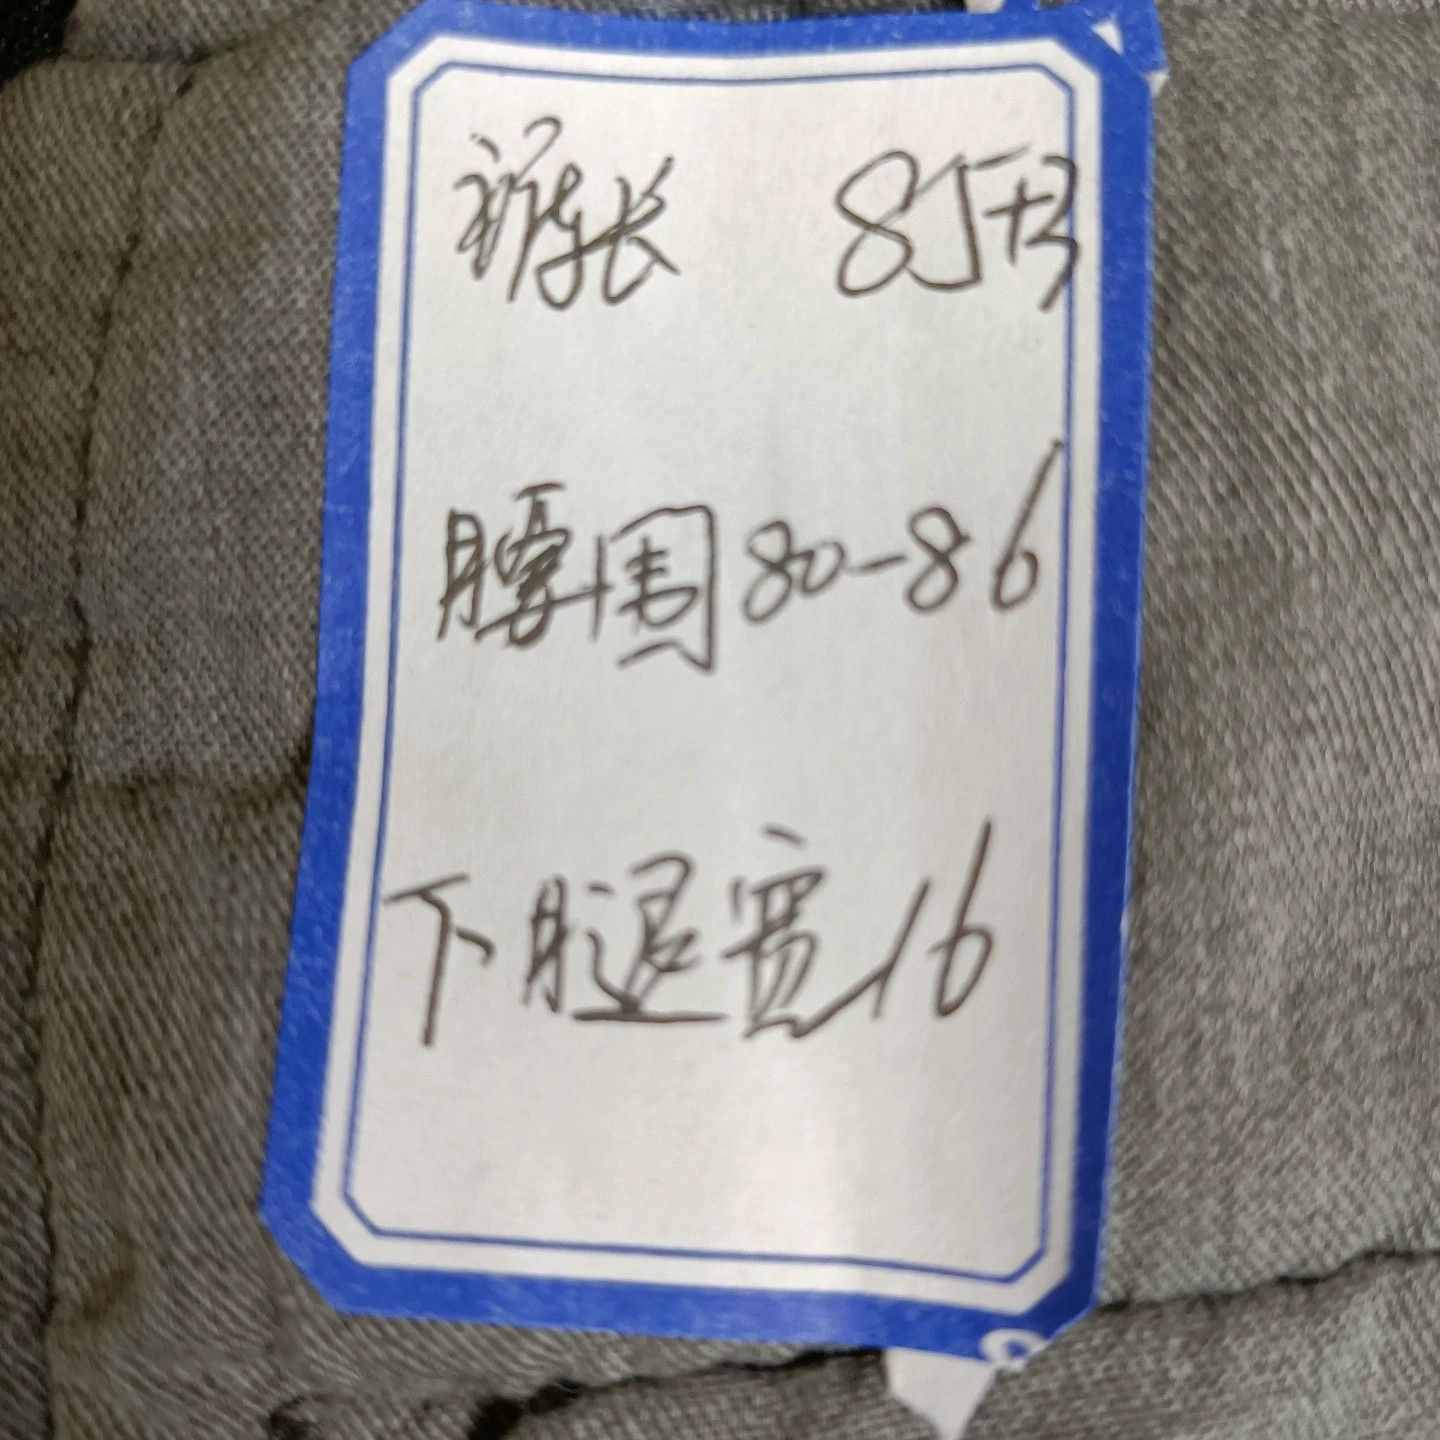 裤长 85+3
腰围 80-86
下腿宽 16